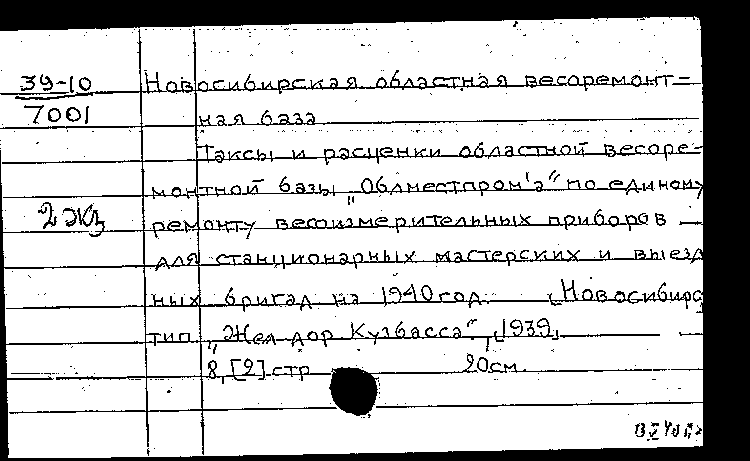 39-10
7001
2 экз
Новосибирская областная весоремонт-
ная база
Таксы и расценки областной весоре-
монтной базы „Облместпром'а" по единому
ремонту весоизмерительных приборов
для станционарных мастерских и выезд
ных бригад на 1940 год. [Новосибирс
тип „Жел-дор Кузбасса", [1939]
8, [2] стр 20 см.